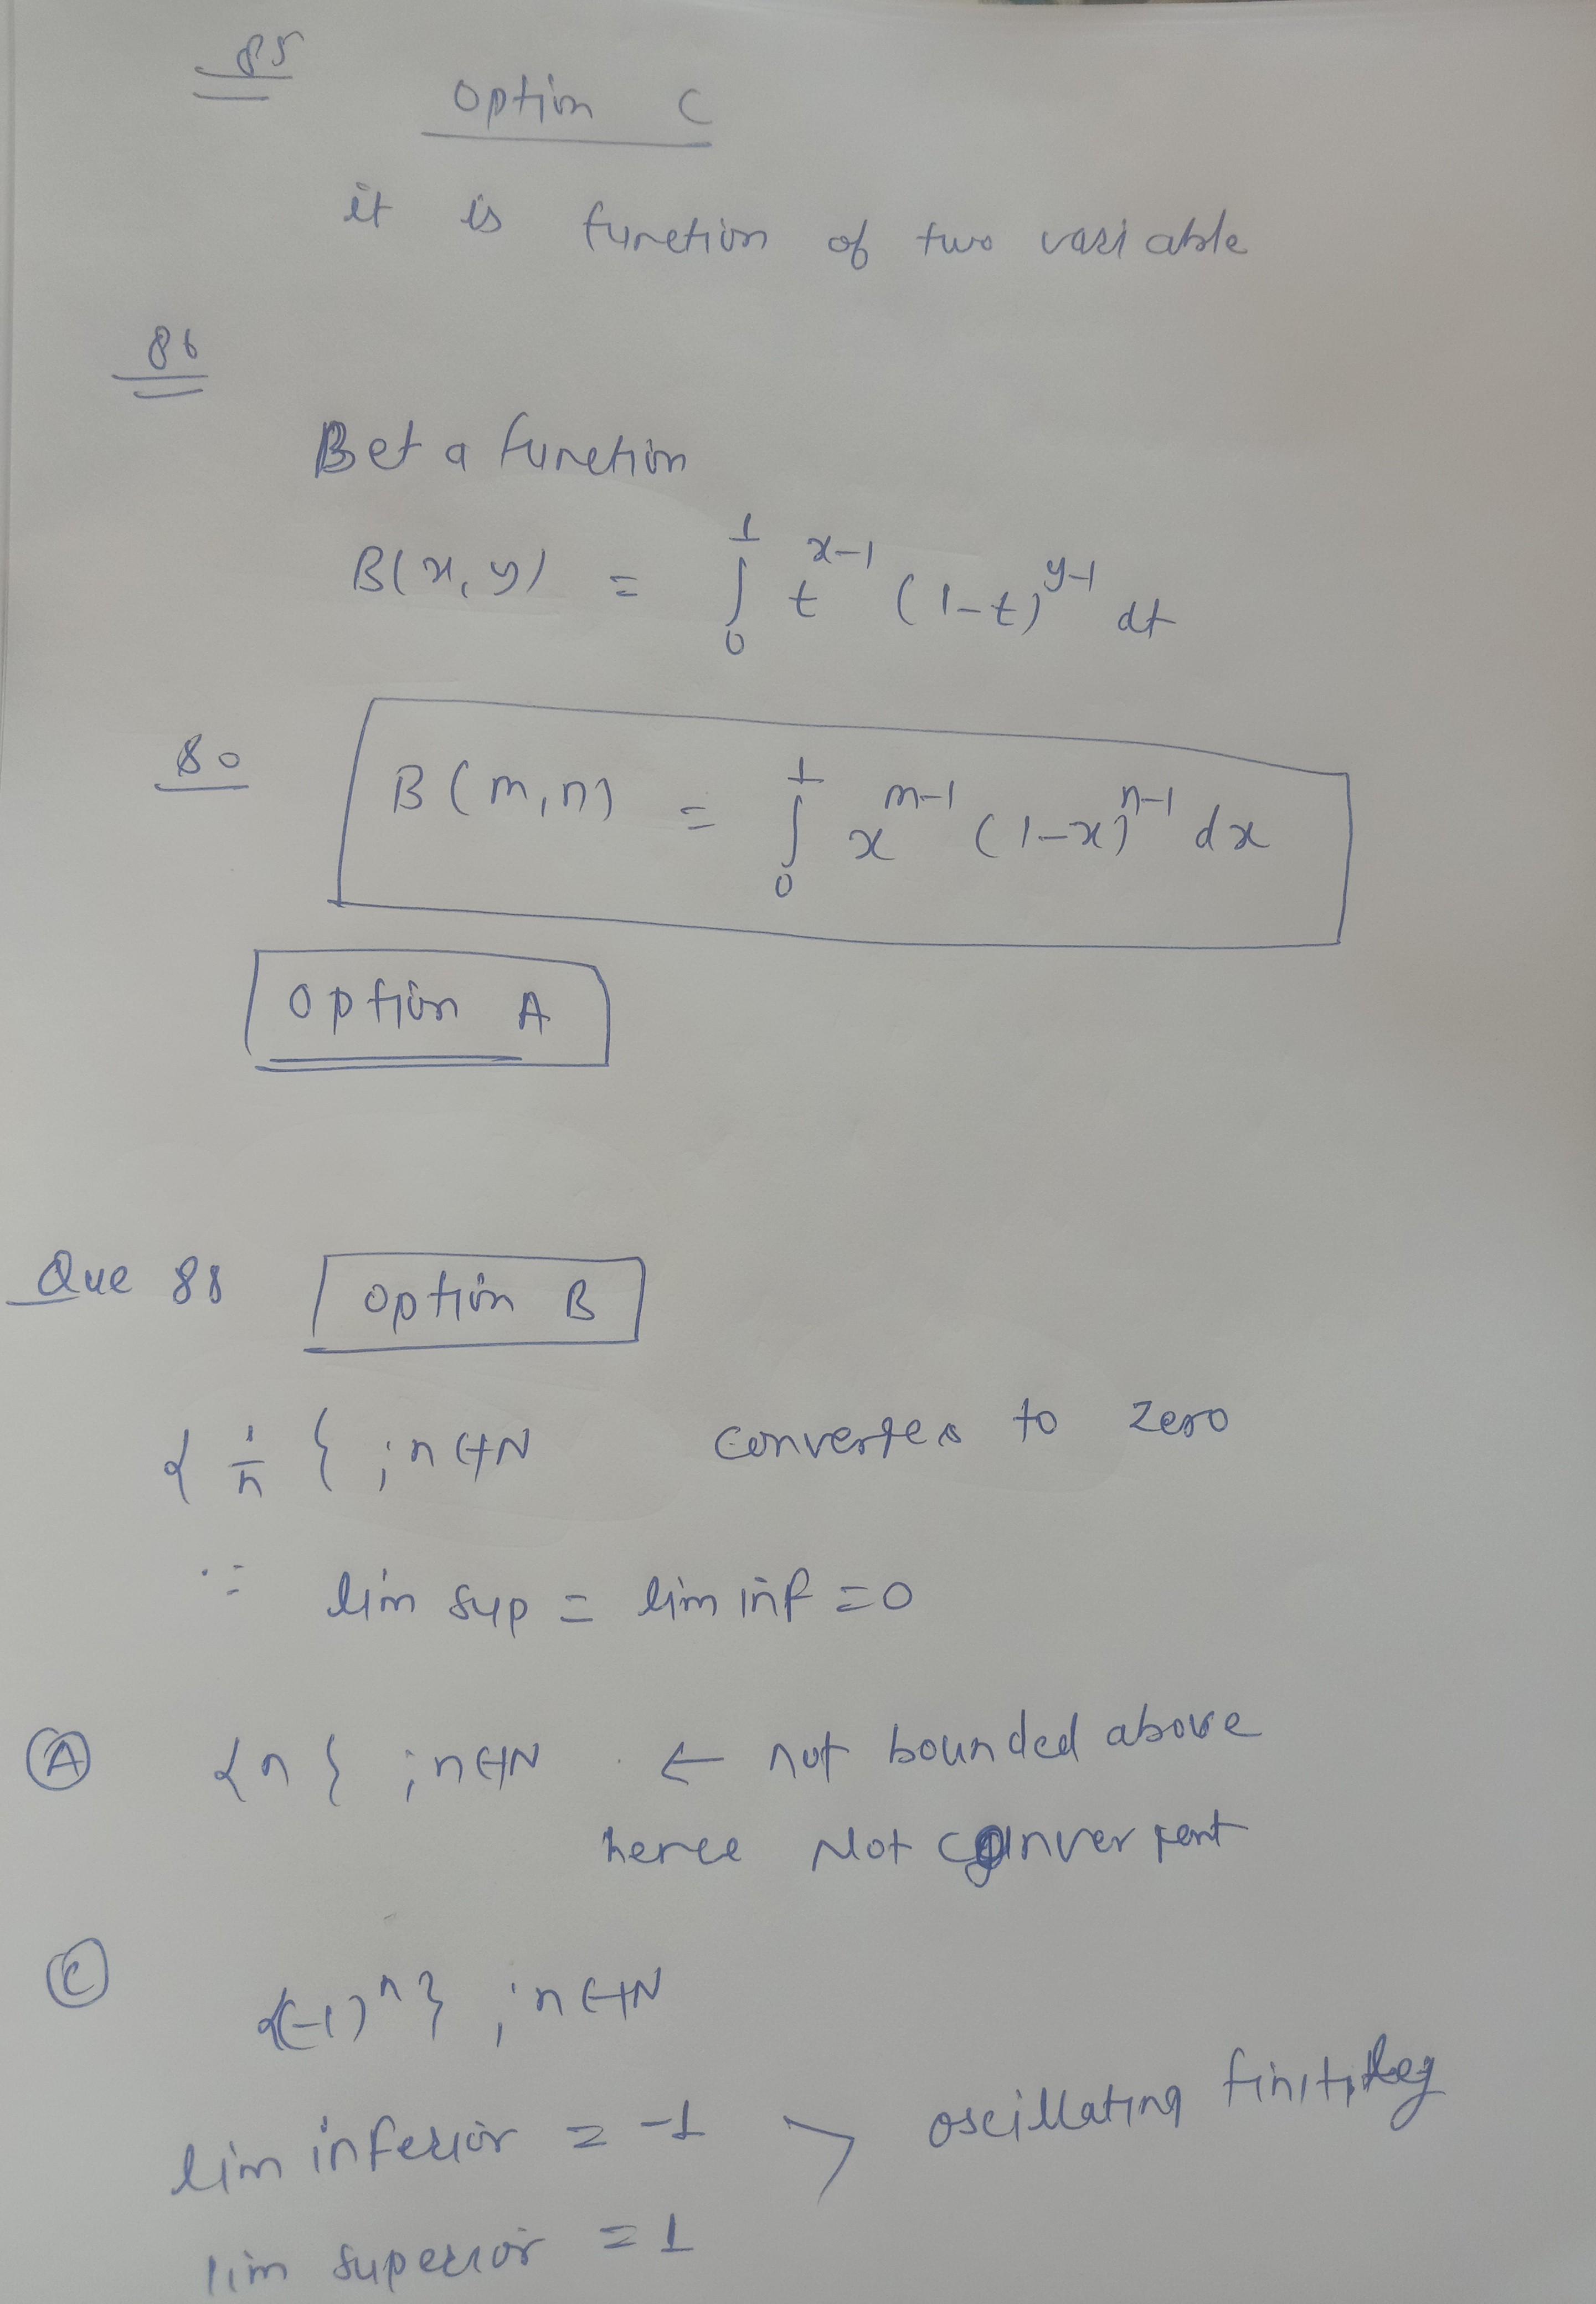 85
Option C
it is function of two variable
86
Beta function
B(x, y) = ∫₀¹ t^{x-1} (1-t)^{y-1} dt
80 B(m,n) = ∫₀¹ x^{m-1} (1-x)^{n-1} dx
Option A
Que 88 Option B
{1/n} ; n∈ℕ converges to zero
∵ lim sup = lim inf = 0
Ⓐ {n} ; n∈ℕ ← not bounded above
hence Not convergent
Ⓒ {(-1)ⁿ} ; n∈ℕ
lim inferior = -1 > oscillating
lim superior = 1